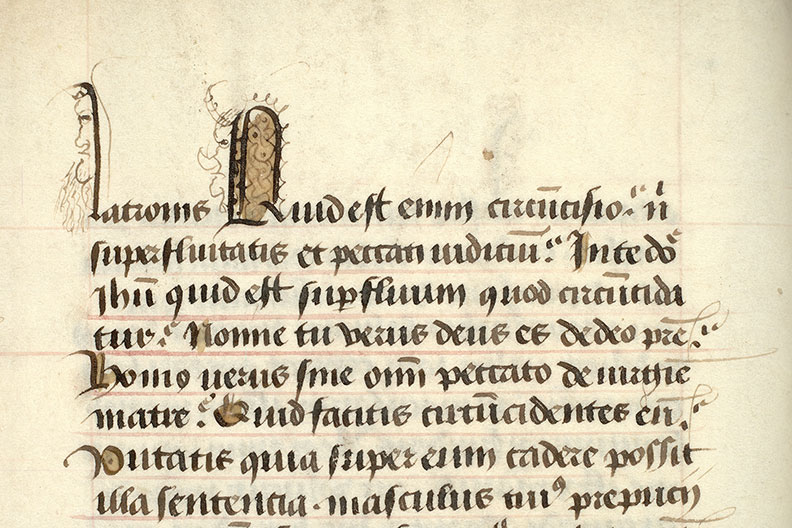 latronis Quid est enim circūcisio. n̄
superfluitatis et peccati iudiciū. In te dō
ihū quid est sup̄fluum quod circūcida
tur. Nonne tu verus deus es de deo pr̄e.
Homo uerus sine om̄i peccato de uirgīe
matre. Quid facitis circūcidentes eū.
Putatis quia super eum cadere possit
illa sentencia. masculus cuiꝰ prepucij